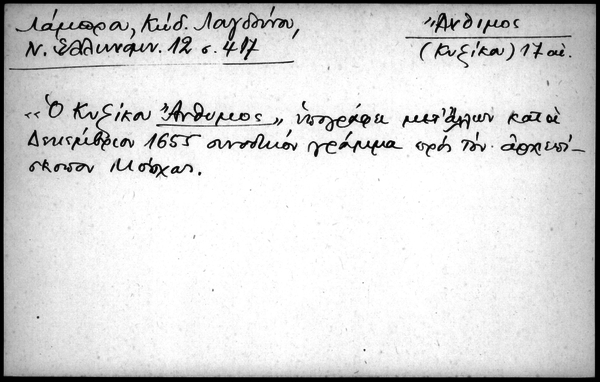 Λάμπρου, Κώδ. Λαγδούνου,
Ν. Ἑλληνομν. 12 σ. 417
Ἄνθιμος
(Κυζίκου) 17 αἰ.
«Ὁ Κυζίκου Ἄνθυμος» ὑπογράφει μετ' ἄλλων κατὰ
Δεκεμβριον 1655 συνοδικόν γράμμα πρός τόν ἀρχιεπί-
σκοπον Μόσχας.